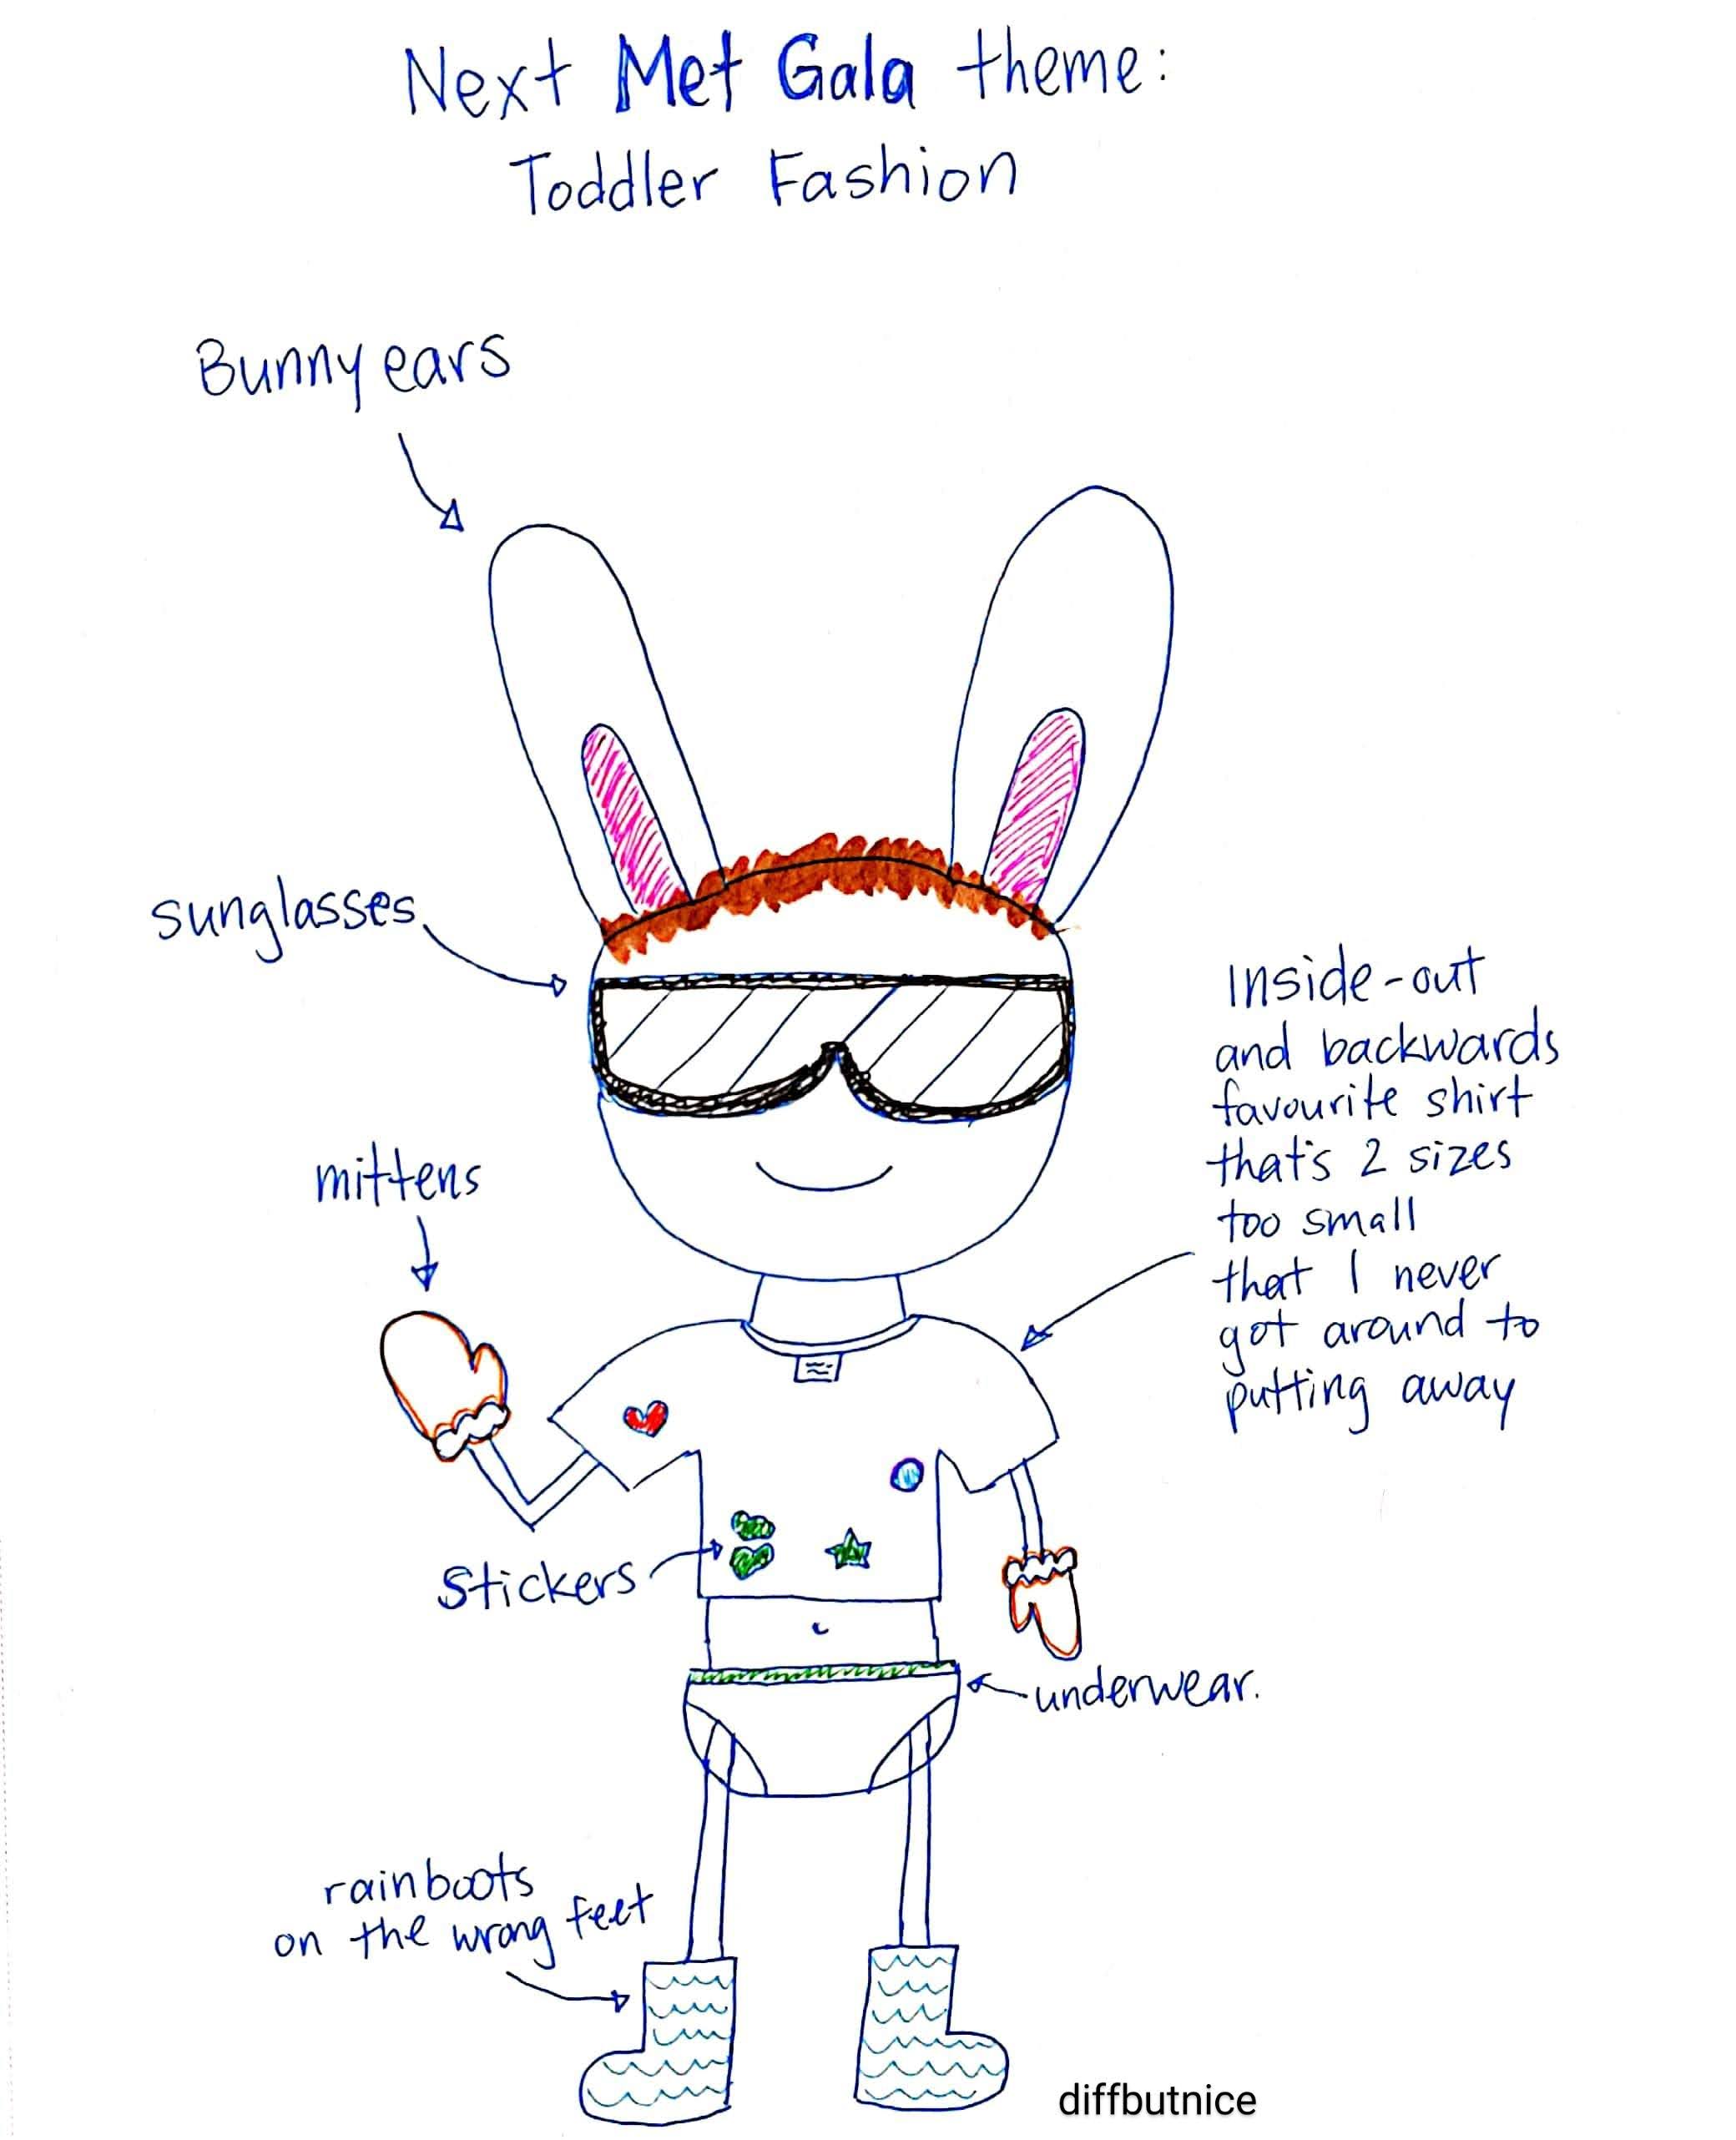 Next Met Gala theme:
Toddler Fashion
Bunny ears
sunglasses
Inside-out
and backwards
favourite shirt
that's 2 sizes
too small
that I never
got around to
putting away
mittens
Stickers
underwear.
rainboots
on the wrong feet
diffbutnice